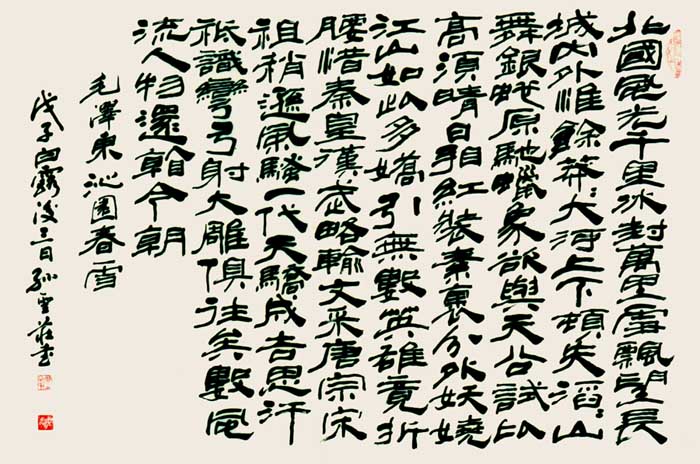 北國風光千里冰封萬里雪飄望長
城内外惟餘莽:大河上下頓失滔:山
舞銀蛇原馳蠟象欲與天公試比
高須晴日看紅裝素裹分外妖嬈
江山如此多嬌引無數英雄竟折
腰惜秦皇漢武略輸文采唐宗宋
祖稍遜風騷一代天驕成吉思汗
祇識彎弓射大雕俱往矣數風
流人物還看今朝
毛澤東沁園春雪
戊子白露後三日孫雲莊書